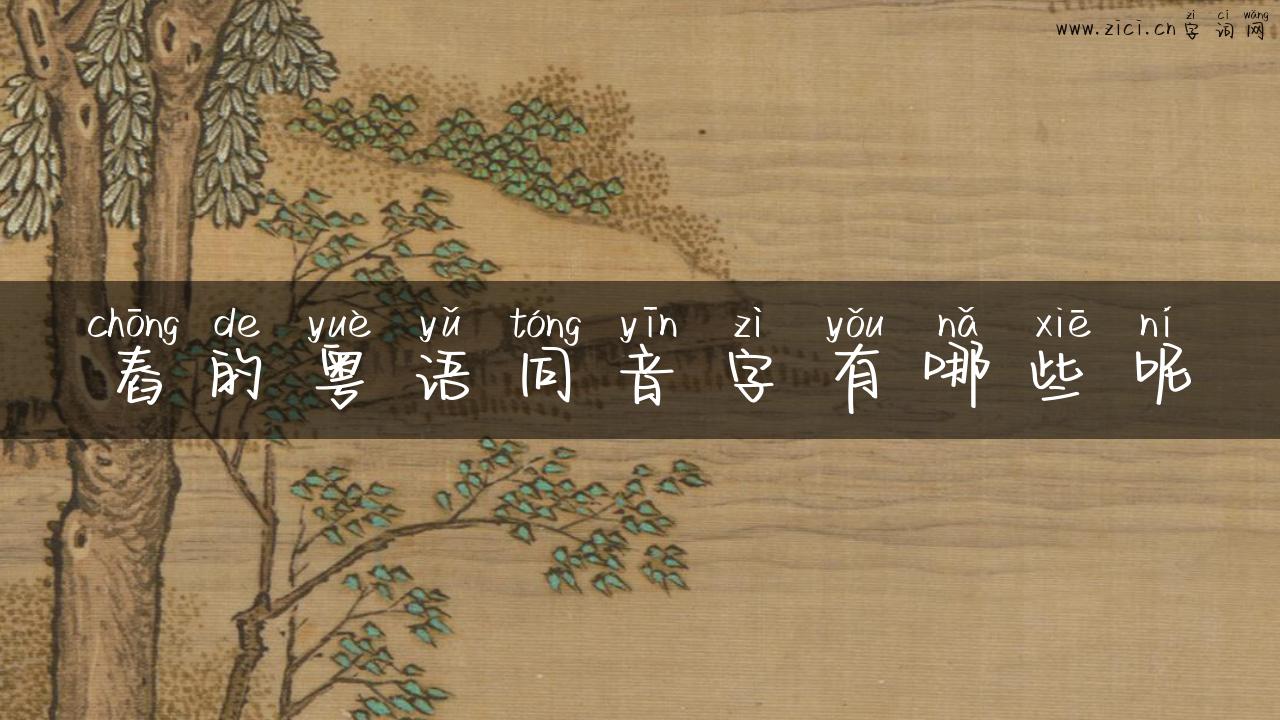 zì cí wǎng
www.zici.cn 字词网
chōng de yuè yǔ tóng yīn zì yǒu nǎ xiē ní
舂的粤语同音字有哪些呢